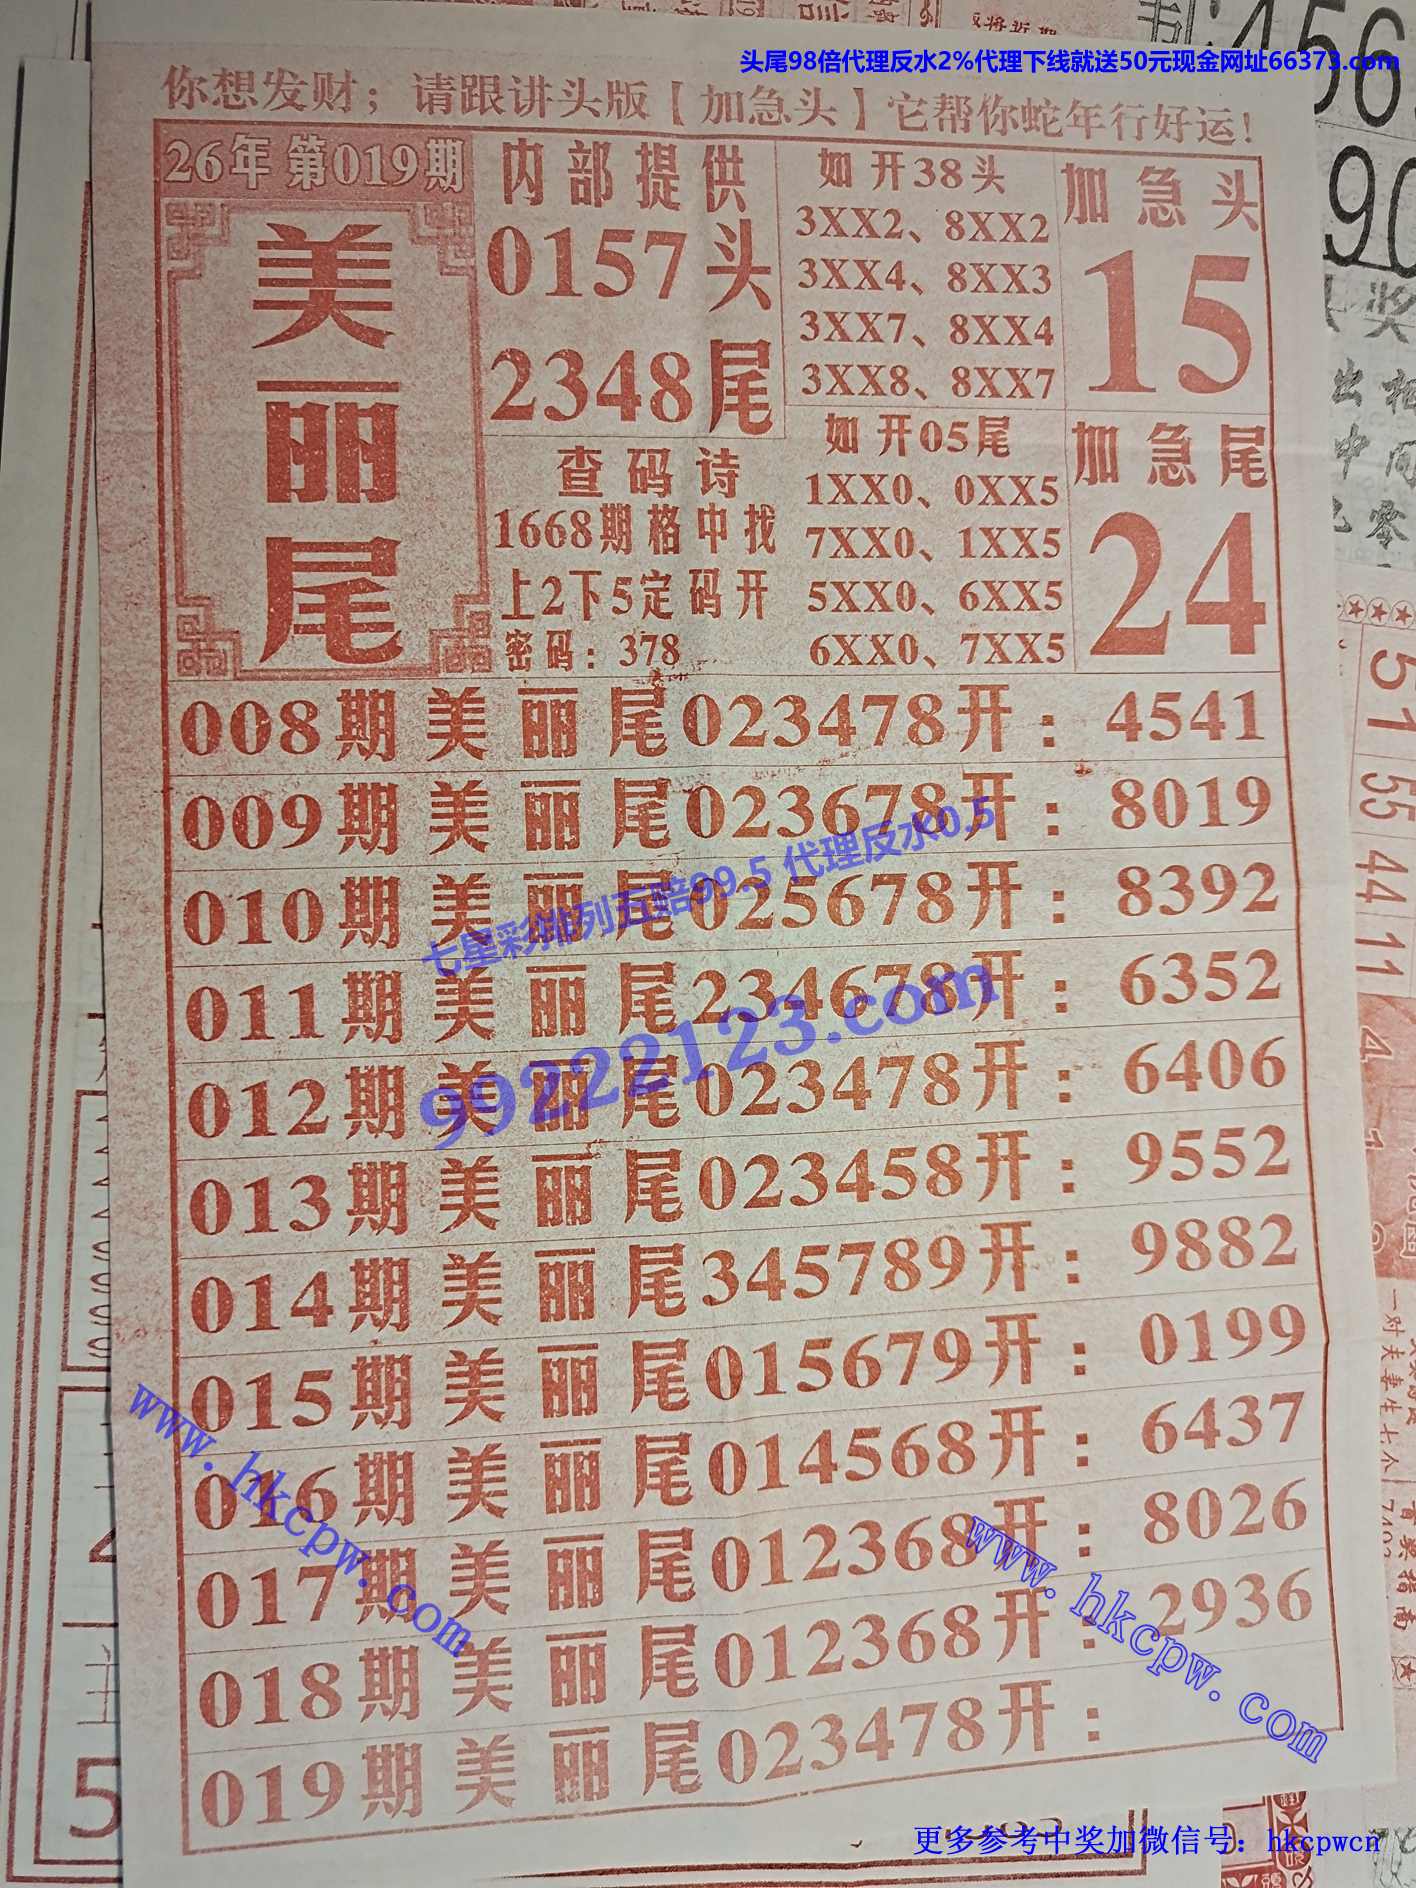 头尾98倍代理反水2%代理下线就送50元现金网址66373.com
你想发财；请跟讲头版【加急头】它帮你蛇年行好运！
26年 第019期
美丽尾
内部提供
0157头
2348尾
查码诗
1668期格中找
上2下5定码开
密码：378
如开38头
3XX2、8XX2
3XX4、8XX3
3XX7、8XX4
3XX8、8XX7
如开05尾
1XX0、0XX5
7XX0、1XX5
5XX0、6XX5
6XX0、7XX5
加急头
15
加急尾
24
008期美丽尾023478开：4541
009期美丽尾023678开：8019
010期美丽尾025678开：8392
011期美丽尾234678开：6352
012期美丽尾023478开：6406
013期美丽尾023458开：9552
014期美丽尾345789开：9882
015期美丽尾015679开：0199
016期美丽尾014568开：6437
017期美丽尾012368开：8026
018期美丽尾012368开：2936
019期美丽尾023478开：
七星彩排列五赔99.5 代理反水0.5
99222123.com
www.hkcpw.com
www.hkcpw.com
51
55
44
11
一对夫妻生七个
更多参考中奖加微信号：hkcpwcn